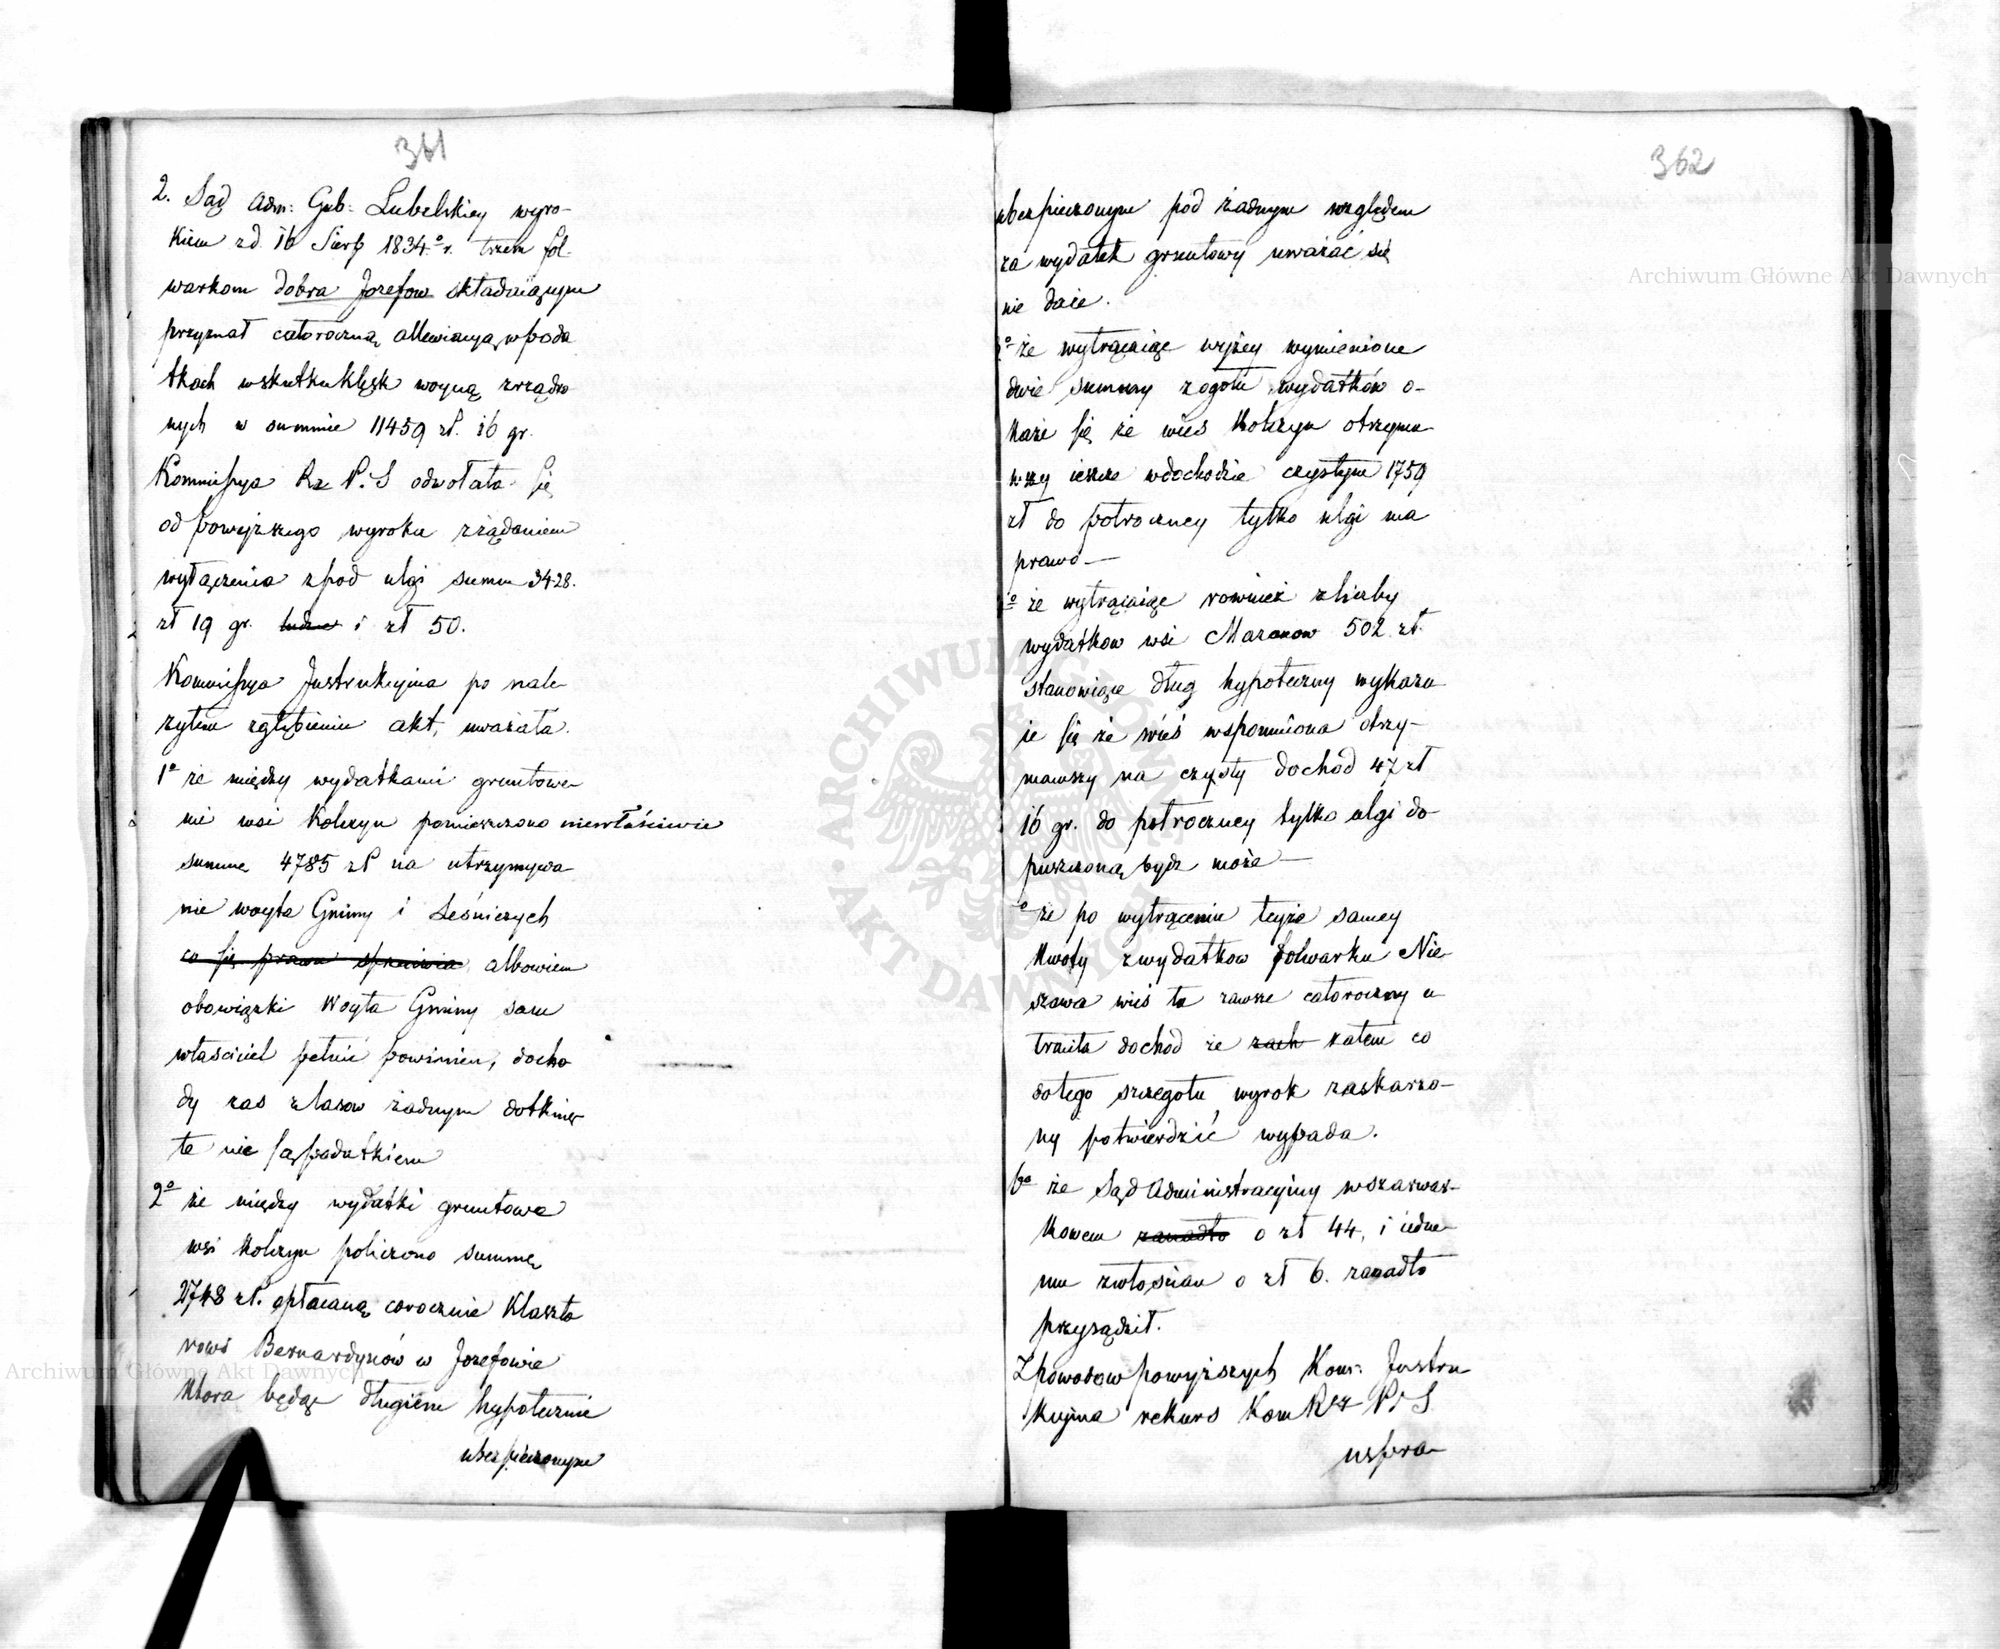 361
2. Sąd Adm: Gub: Lubelskiey wyro-
kiem z d. 16 Sierp 1834.o r. trzem fol-
warkom dobra Jozefow składaiącym
przyznał całoroczną allewiacyą w poda
tkach wskutku klęsk woyną zrządzo
nych w summie 11459 zł. 16 gr.
Kommissya Rz P. i S odwołała się
od powyższego wyroku z żądaniem
wyłączenia z pod ulgi summ 3428.
zł 19 gr. i zł 50.
Kommissya Instrukcyina po nale
żytem zgłębieniu akt, uważała.
1o że między wydatkami gruntowe-
mi wsi Kolczyn pomieszczono niewłaściwie
summę 4785 zł na utrzymywa-
nie woyta Gminy i Leśniczych
co się prawu sprzeciwia albowiem
obowiązki Woyta Gminy sam
właściciel pełnić powinien, docho
dy zas z lasow żadnym dotknię-
te nie są podatkiem
2o że między wydatki gruntowe
wsi Kolczyn policzono summę
2748 zł. opłacaną corocznie Klaszto
rowi Bernardynów w Jozefowie
ktora będąc długiem hypotecznie
ubezpieczonym
362
ubezpieczonym pod żadnym względem
za wydatek gruntowy uważać się
nie daie.
o że wytrącaiąc wyżey wymienione
dwie summy z ogołu wydatków o-
każe się że wieś Kolczyn otrzyma
wszy ieszcze w dochodzie czystym 1759
zł do połroczney tylko ulgi ma
prawo —
o że wytrącaiąc rownież z liczby
wydatkow wsi Mazanow 502 zł.
stanowiące dług hypoteczny wykazu
ie się że wieś wspomniona otrzy-
mawszy na czysty dochod 47 zł
16 gr. do połroczney tylko ulgi do-
puszczoną bydz może —
o że po wytrąceniu teyże samey
kwoty z wydatkow folwarku Nie-
szawa wieś ta zawsze całoroczny u
traciła dochod że zach zatem co
do tego szczegołu wyrok zaskarżo-
ny potwierdzić wypada.
6o że Sąd Administracyiny w szarwar-
kowem zanadto o zł 44, i iedne-
mu z włościan o zł 6. zanadto
przysądził.
Z powodow powyższych Kom: Instru
kcyina rekurs Kom Rz P i S
uspra-